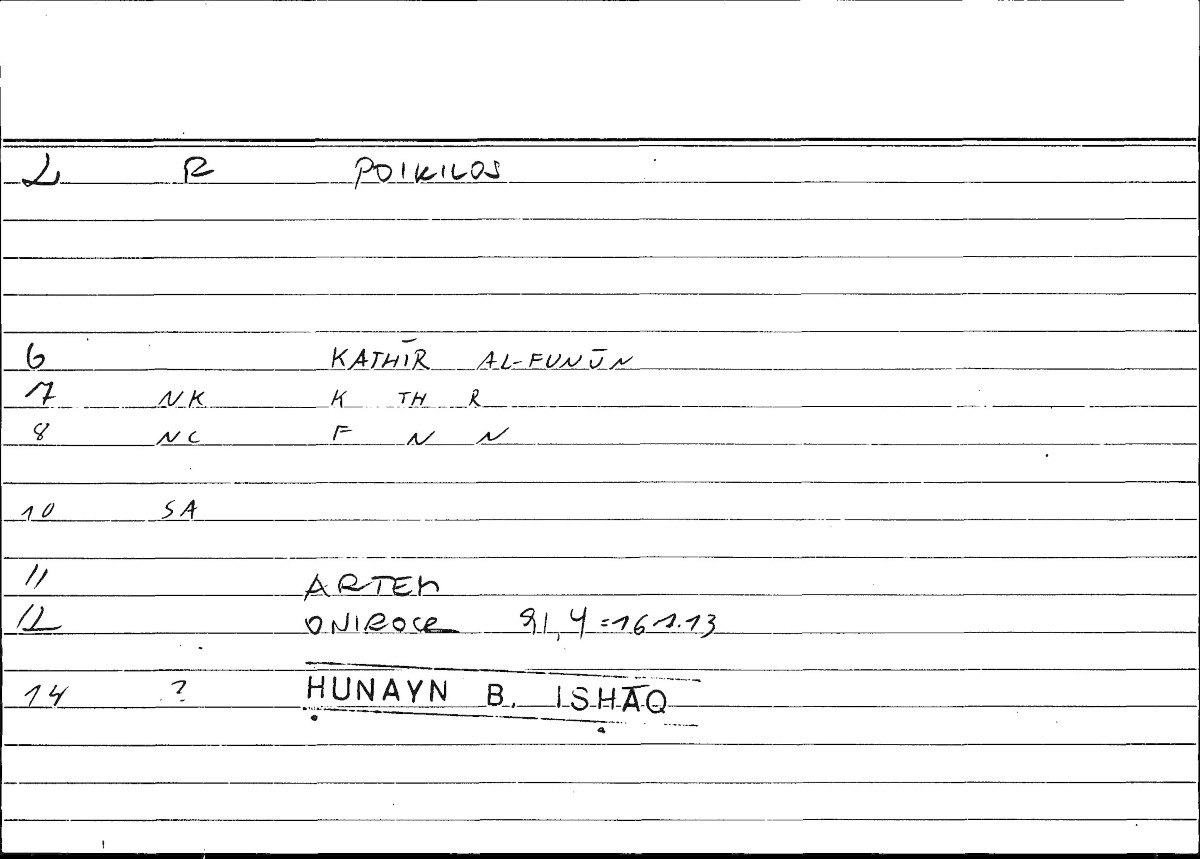 2 R POIKILOS
6 KATHĪR AL-FUNŪN
7 NK K TH R
8 NC F N N
10 SA
11 ARTEM
12 ONIROCR 91,4=161.13
14 ? ḤUNAYN B. ISḤĀQ